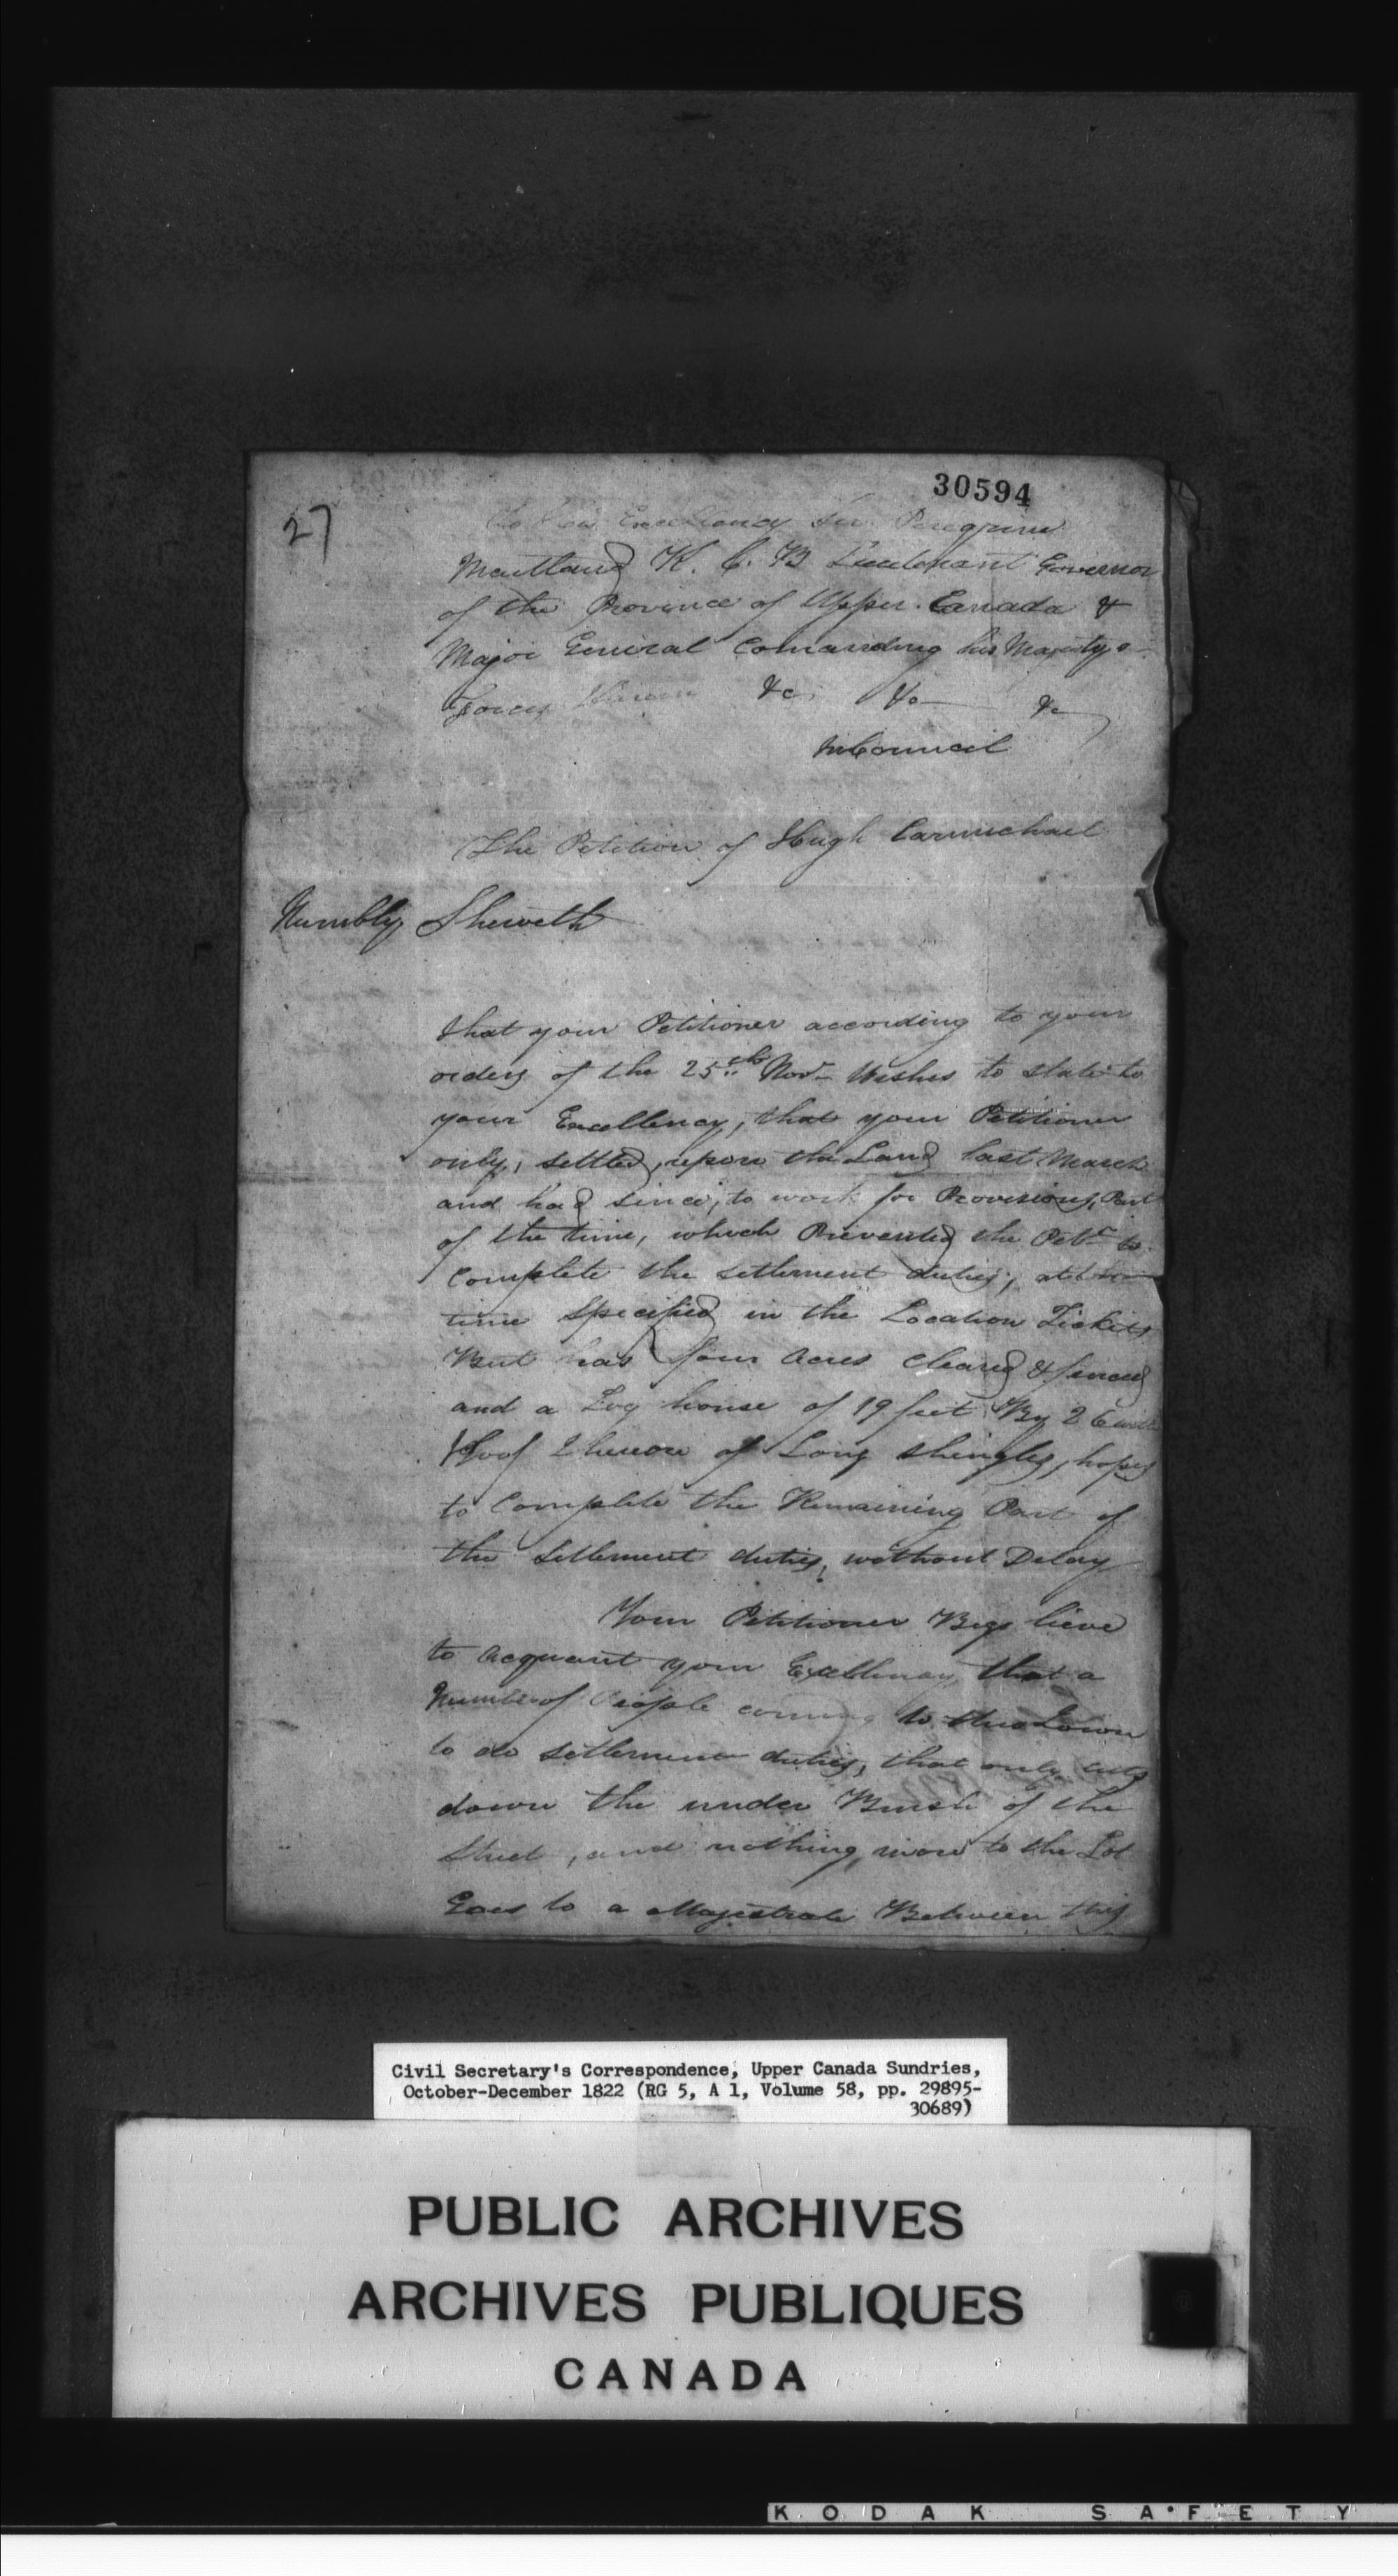 30594
27
To his Excellency Sir Peregrine
Maitland K. C. B Lieutenant Governor
of the Province of Upper Canada &
Major General Comanding his Majestys
Forces &c &c &c
In Council
The Petition of Hugh Carmichael
Humbly Sheweth
that your Petitioner according to your
orders of the 25th Novr Wishes to state to
your Excellency, that your Petitioner
only, settled, upon the Land last March
and had since, to work for Provisions, Part
of the time, which Prevented the Petr to
Complete the settlement duties, at
time Specified in the Location Tickets
But has four Acres cleared & fenced
and a Log house of 19 feet By 2
Roof thereon of Long shingles, hopes
to Complete the Remaining Part of
the Settlement duties, without Delay
Your Petitioner Begs lieve
to Acquaint your Excellency, that a
Number of People coming to this Town
to do settlement duties, that only cuts
down the under Brush of the
Street, and nothing more to the Lot
Goes to a Magistrate Between this
Civil Secretary's Correspondence, Upper Canada Sundries,
October-December 1822 (RG 5, A 1, Volume 58, pp. 29895-
30689)
PUBLIC ARCHIVES
ARCHIVES PUBLIQUES
CANADA
KODAK SAFETY